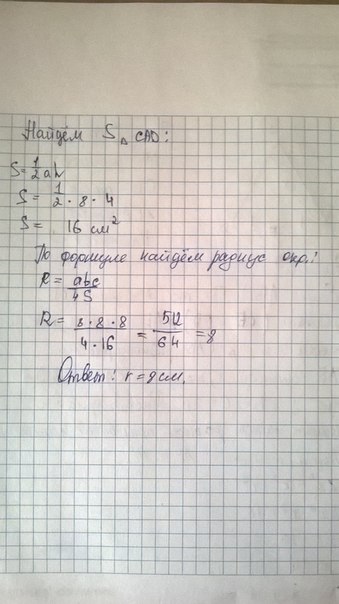 Найдём S△ CAD:
S=1/2 ah
S = 1/2 · 8 · 4
S = 16 см²
По формуле найдём радиус окр.:
R = abc/4S
R = 8·8·8/4·16 = 512/64 =8
Ответ: r = 8 см.